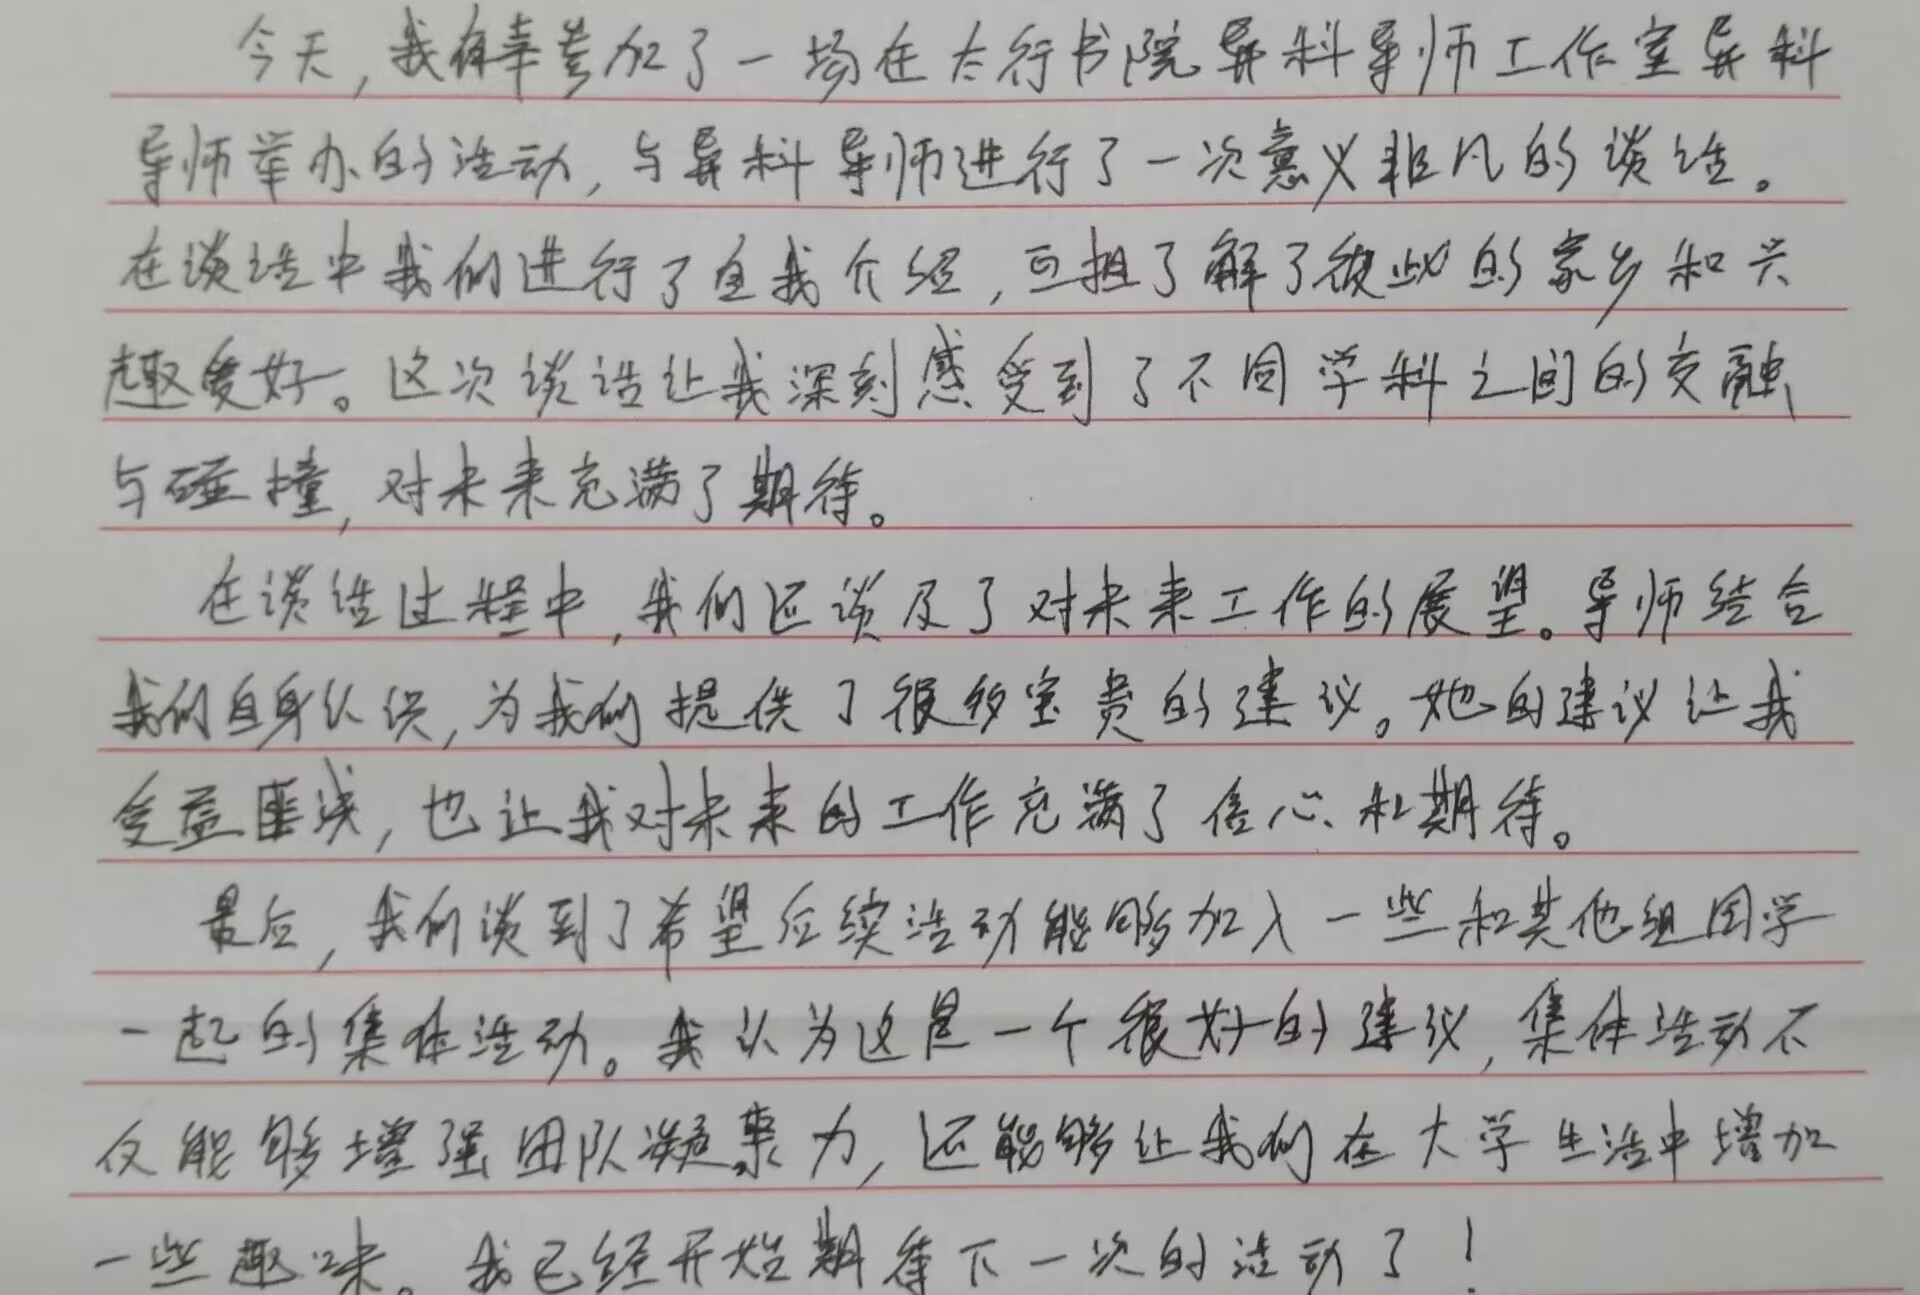 今天，我有幸参加了一场在太行书院异科导师工作室异科
导师举办的活动，与异科导师进行了一次意义非凡的谈话。
在谈话中我们进行了自我介绍，互相了解了彼此的家乡和兴
趣爱好。这次谈话让我深刻感受到了不同学科之间的交融
与碰撞，对未来充满了期待。
在谈话过程中，我们还谈及了对未来工作的展望。导师结合
我们自身认识，为我们提供了很多宝贵的建议。她的建议让我
受益匪浅，也让我对未来的工作充满了信心和期待。
最后，我们谈到了希望后续活动能够加入一些和其他组同学
一起的集体活动。我认为这是一个很好的建议，集体活动不
仅能够增强团队凝聚力，还能够让我们在大学生活中增加
一些趣味。我已经开始期待下一次的活动了！